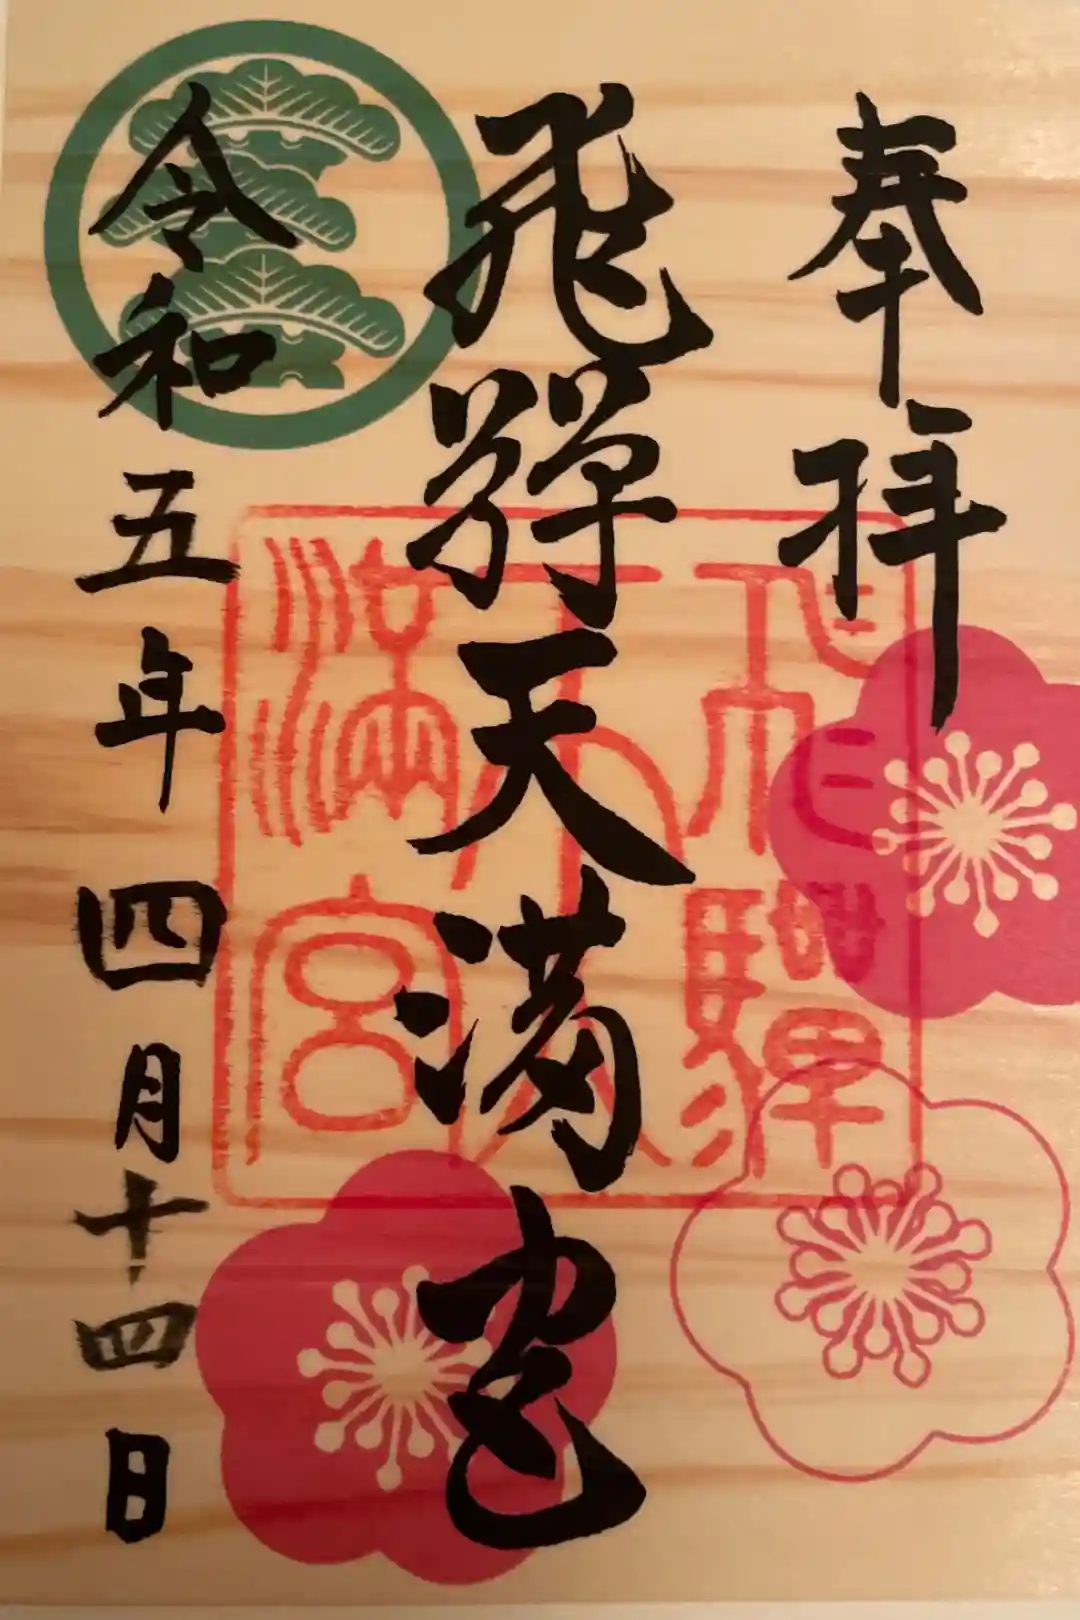 奉拝
飛騨天満宮
令和五年四月十四日
飛騨天満宮